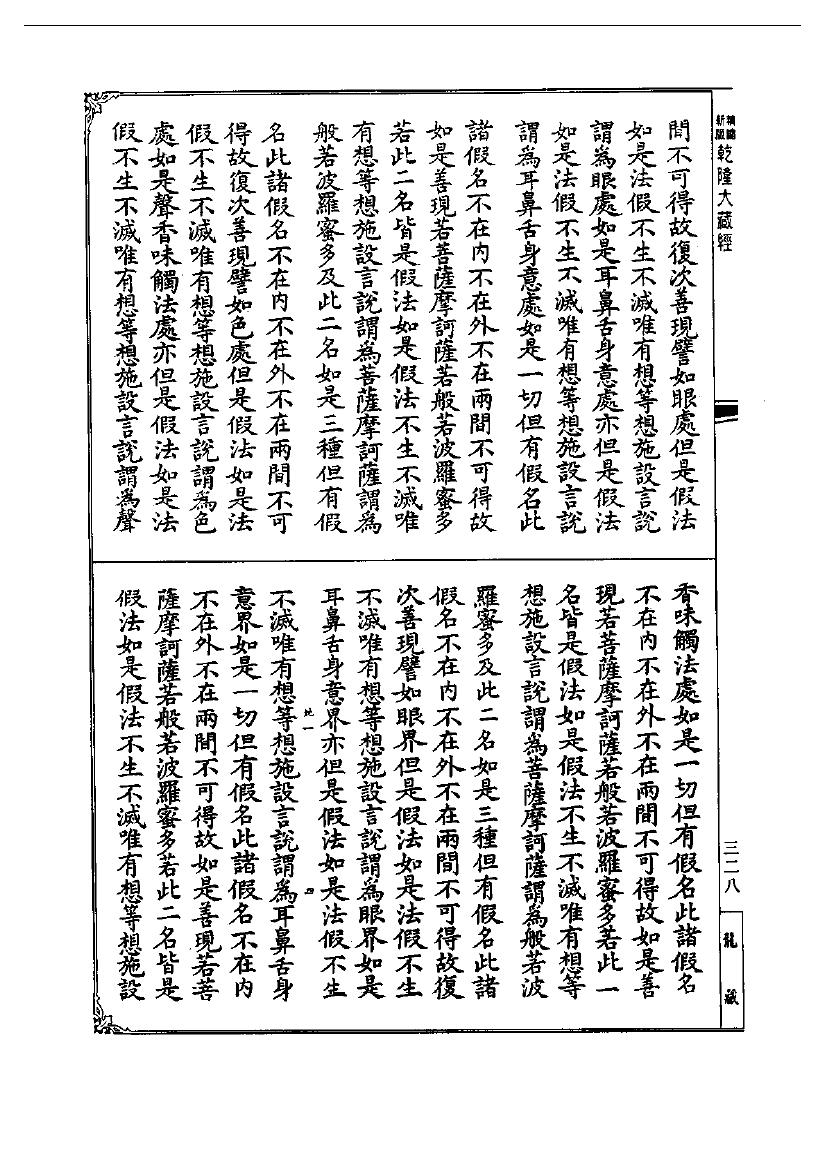 乾隆大藏經
間不可得故復次善現譬如眼處但是假法
如是法假不生不滅唯有想等想施設言說
謂為眼處如是耳鼻舌身意處亦但是假法
如是法假不生不滅唯有想等想施設言說
謂為耳鼻舌身意處如是一切但有假名此
諸假名不在內不在外不在兩間不可得故
如是善現若菩薩摩訶薩若般若波羅蜜多
若此二名皆是假法如是假法不生不滅唯
有想等想施設言說謂為菩薩摩訶薩謂為
般若波羅蜜多及此二名如是三種但有假
名此諸假名不在內不在外不在兩間不可
得故復次善現譬如色處但是假法如是法
假不生不滅唯有想等想施設言說謂為色
處如是聲香味觸法處亦但是假法如是法
假不生不滅唯有想等想施設言說謂為聲
香味觸法處如是一切但有假名此諸假名
不在內不在外不在兩間不可得故如是善
現若菩薩摩訶薩若般若波羅蜜多若此一
名皆是假法如是假法不生不滅唯有想等
想施設言說謂為菩薩摩訶薩謂為般若波
羅蜜多及此二名如是三種但有假名此諸
假名不在內不在外不在兩間不可得故復
次善現譬如眼界但是假法如是法假不生
不滅唯有想等想施設言說謂為眼界如是
耳鼻舌身意界亦但是假法如是法假不生
不滅唯有想等想施設言說謂為耳鼻舌身
意界如是一切但有假名此諸假名不在內
不在外不在兩間不可得故如是善現若菩
薩摩訶薩若般若波羅蜜多若此二名皆是
假法如是假法不生不滅唯有想等想施設
三二八
龍藏